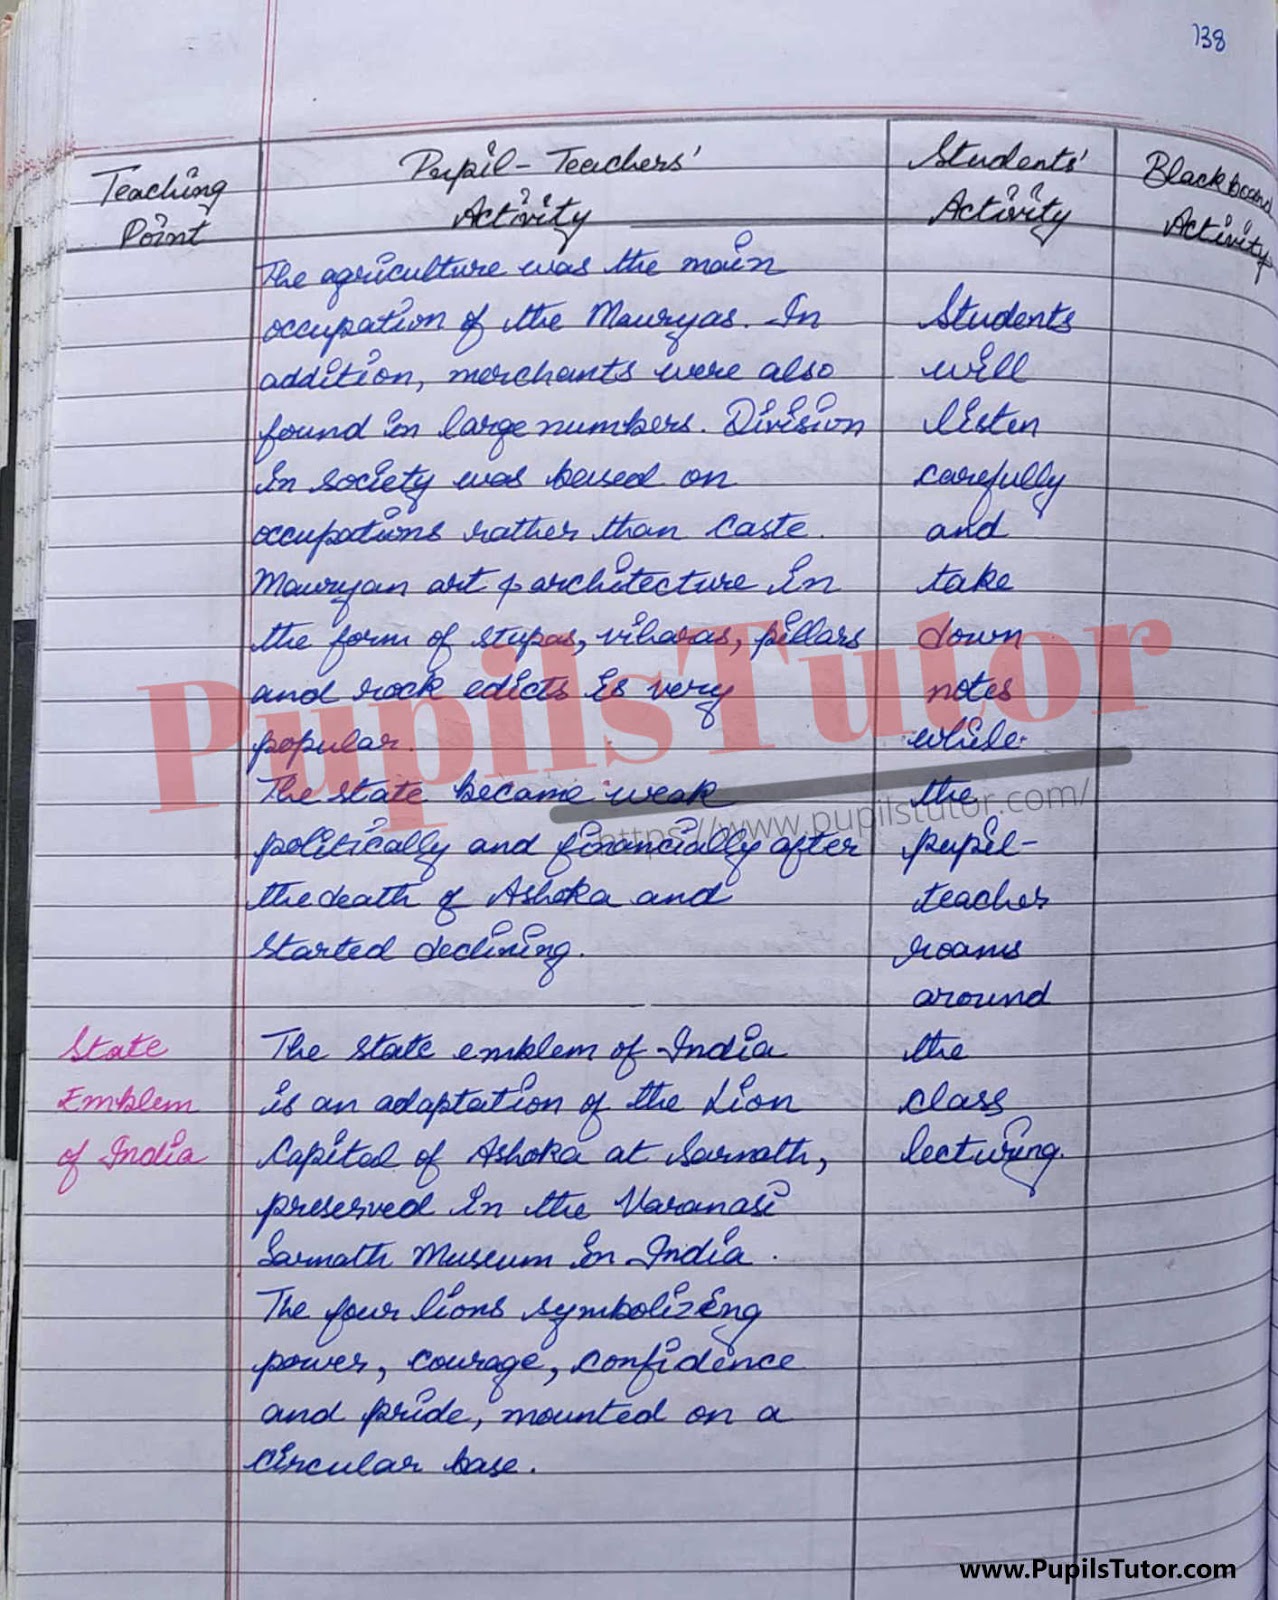 138
Teaching
Point
Pupil-Teachers'
Activity
Students'
Activity
Blackboard
Activity
The agriculture was the main
occupation of the Mauryas. In
addition, merchants were also
found in large numbers. Division
in society was based on
occupations rather than caste.
Mauryan art & architecture in
the form of stupas, viharas, pillars
and rock edicts is very
popular.
The state became weak
politically and financially after
the death of Ashoka and
started declining.
Students
will
listen
carefully
and
take
down
notes
while
the
pupil-
teacher
roams
around
the
class
lecturing.
State
Emblem
of India
The state emblem of India
is an adaptation of the Lion
Capital of Ashoka at Sarnath,
preserved in the Varanasi
Sarnath Museum in India.
The four lions symbolizing
power, courage, confidence
and pride, mounted on a
circular base.
PupilsTutor
https://www.pupilstutor.com/
www.PupilsTutor.com